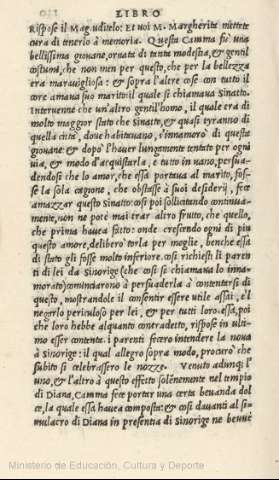 LIBRO
Rispose il Mag.uditelo: Et uoi M. Margherita mettete
cura di tenerlo à memoria. Questa Camma fù una
bellissima giouane, ornata di tanta modestia, & gentil
costumi, che non men per questo, che per la bellezza
era marauigliosa: & sopra l'altre cose con tutto il
core amaua suo marito il quale si chiamaua Sinatto.
Interuenne che un'altro gentil'homo, il quale era di
molto maggior stato che Sinatto, & quasi tyranno di
quella città, doue habitauano, s'innamorò di questa
giouane: & dopò l'hauer lungamente tentato per ogni
uia, & modo d'acquistarla, e tutto in uano, persua-
dendosi che lo amor, che essa portaua al marito, fos-
se la sola cagione, che obstasse à suoi desiderij, fece
amazzar questo Sinatto. così poi sollicitando continua-
mente, non ne potè mai trar altro frutto, che quello,
che prima hauea fatto: onde crescendo ogni dì piu
questo amore, deliberò torla per moglie, benche essa
di stato gli fosse molto inferiore. così richiesti li paren
ti di lei da Sinorige (che così si chiamaua lo inna-
morato) cominciarono à persuaderla à contentarsi di
questo, mostrandole il consentir essere utile assai, e'l
negarlo periculoso per lei, & per tutti loro. essa, poi
che loro hebbe alquanto contradetto, rispose in ulti-
mo esser contenta. i parenti fecero intendere la noua
à Sinorige: il qual allegro sopra modo, procurò che
subito si celebrassero le nozze. Venuto adunq; l'
uno, & l'altro à questo effetto solēnemente nel tempio
di Diana, Camma fece portar una certa beuanda dol
ce, la quale essa hauea composta: & così dauanti al si-
mulacro di Diana in presentia di Sinorige ne beuuè
Ministerio de Educación, Cultura y Deporte